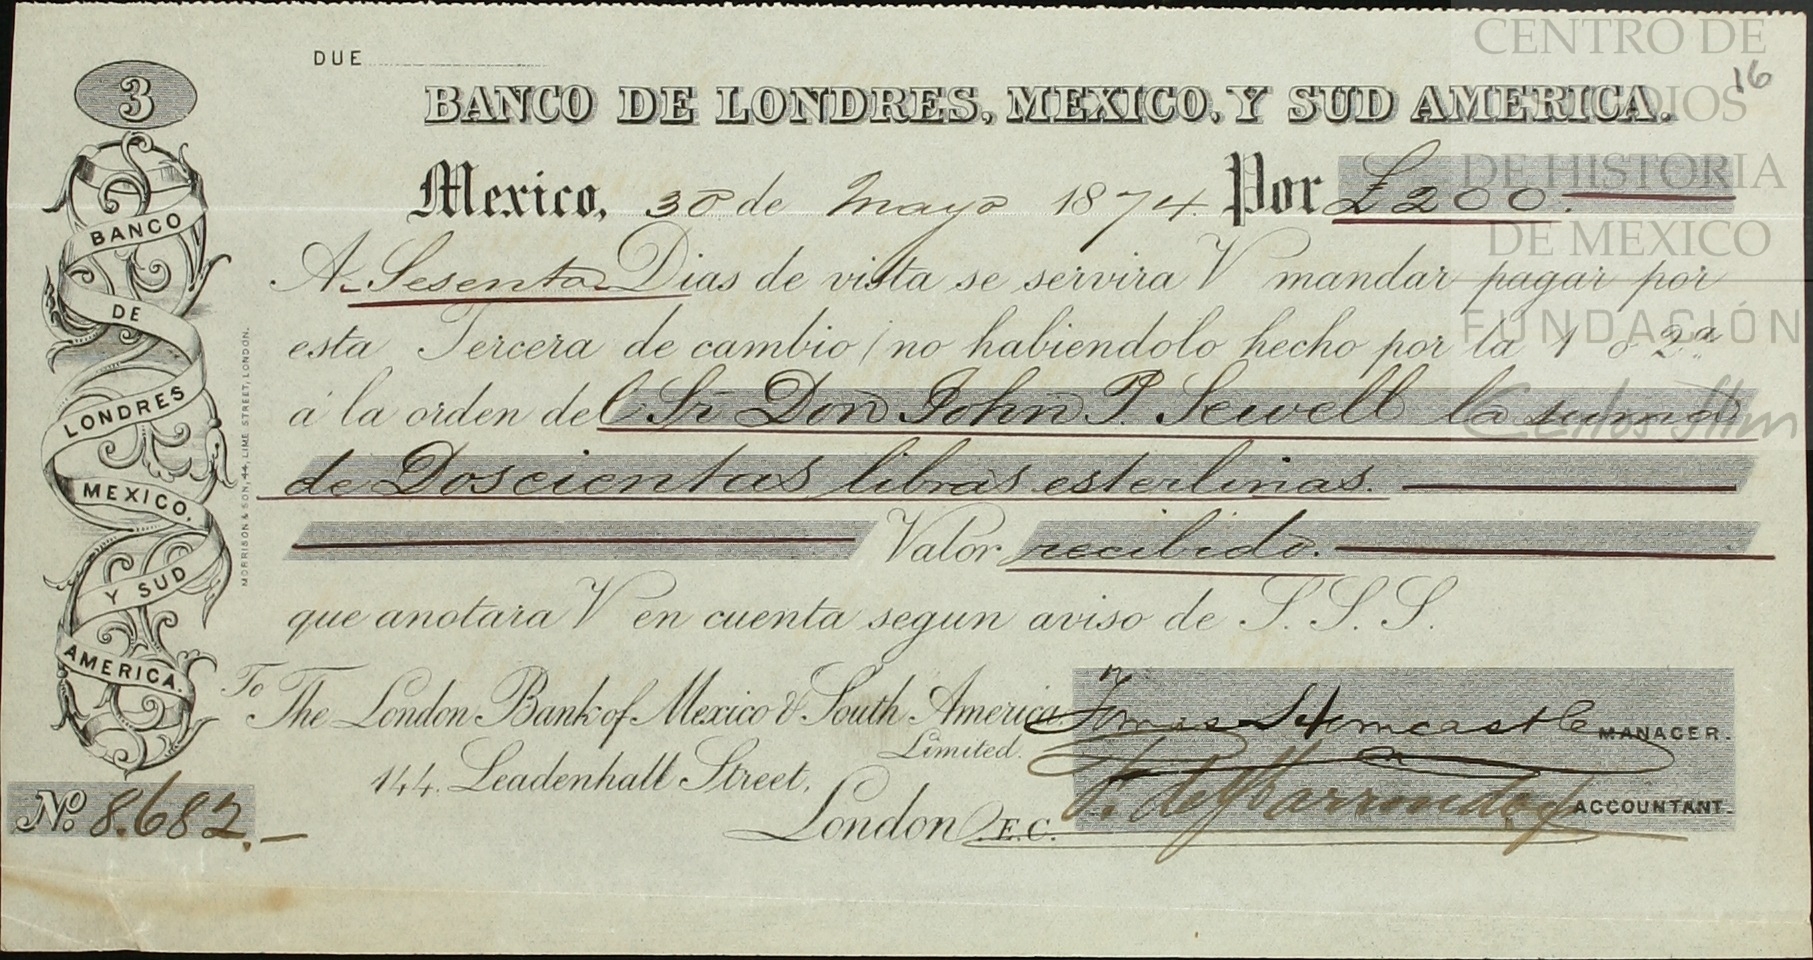 DUE
3
BANCO DE LONDRES, MEXICO, Y SUD AMERICA.
16
Mexico, 30 de Mayo 1874. Por £200.
A Sesenta Dias de vista se servira V mandar pagar por
esta Tercera de cambio (no habiendolo hecho por la 1 o 2ª
á la orden del Sr. Don John P. Sewell la suma
de Doscientas libras esterlinas.
Valor recibido.
que anotara V en cuenta segun aviso de S. S. S.
To The London Bank of Mexico & South America
Limited.
144. Leadenhall Street,
London E.C.
MANAGER.
ACCOUNTANT.
No. 8.682.
BANCO
DE
LONDRES
MEXICO.
Y SUD
AMERICA.
MORRISON & SON, 44, LIME STREET, LONDON.
CENTRO DE
ESTUDIOS
DE HISTORIA
DE MEXICO
FUNDACIÓN
Carlos Slim